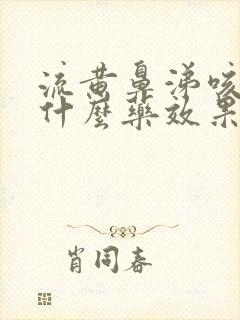 流黄鼻涕咳
什麼藥效果
肖同春